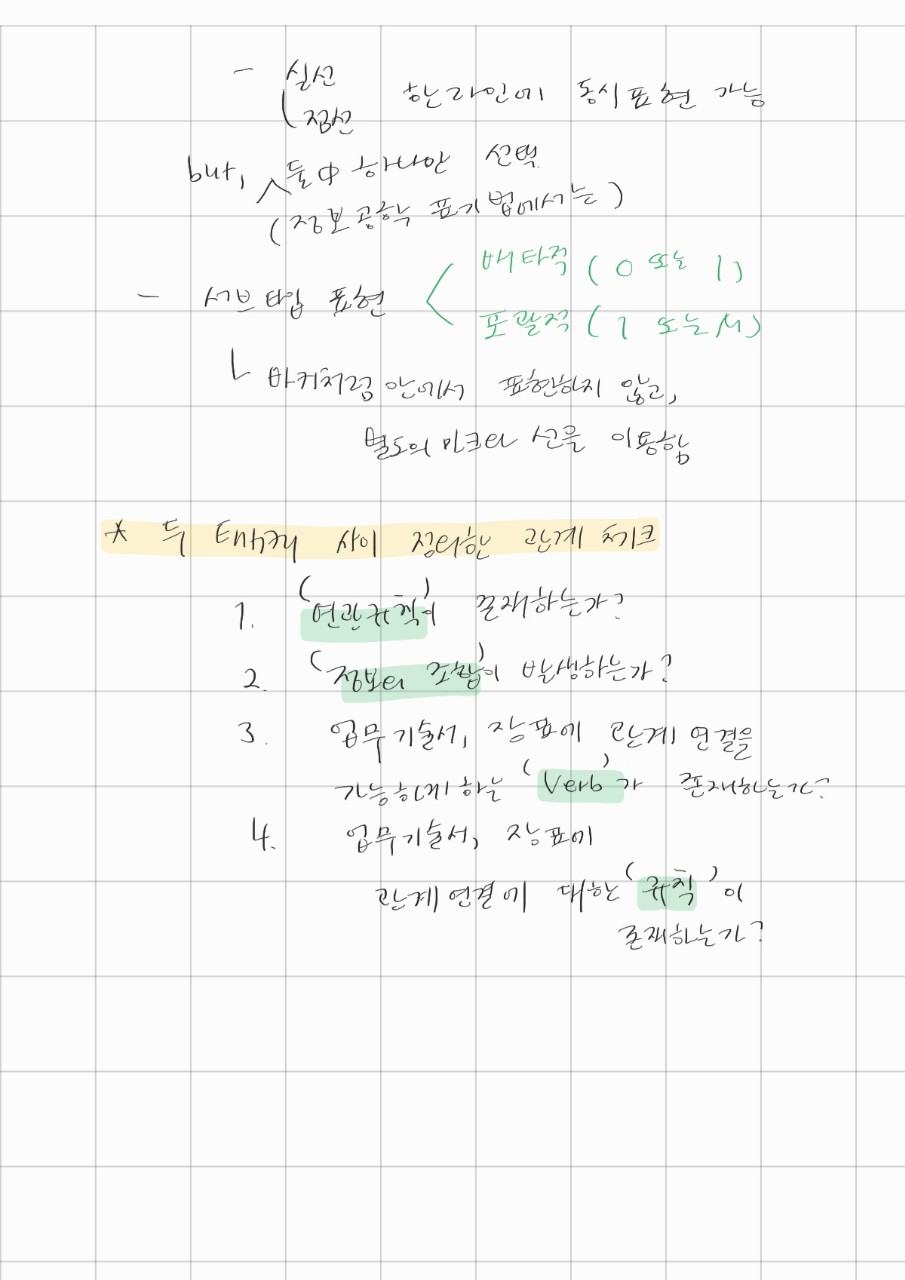 - 실선
( 점선 한라인에 동시표현 가능
but, 둘中 하나만 선택
(정보공학 표기법에서는)
- 서브타입 표현 < 배타적 (0 또는 1)
포괄적 (1 또는 M)
└ 바커처럼 안에서 표현하지 않고,
별도의 마크와 선을 이용함
* 두 Entity 사이 정의한 관계 체크
1. (연관규칙)이 존재하는가?
2. (정보의 조합)이 발생하는가?
3. 업무기술서, 장표에 관계 연결을
가능하게 하는 (Verb)가 존재하는가?
4. 업무기술서, 장표에
관계 연결에 대한 (규칙)이
존재하는가?